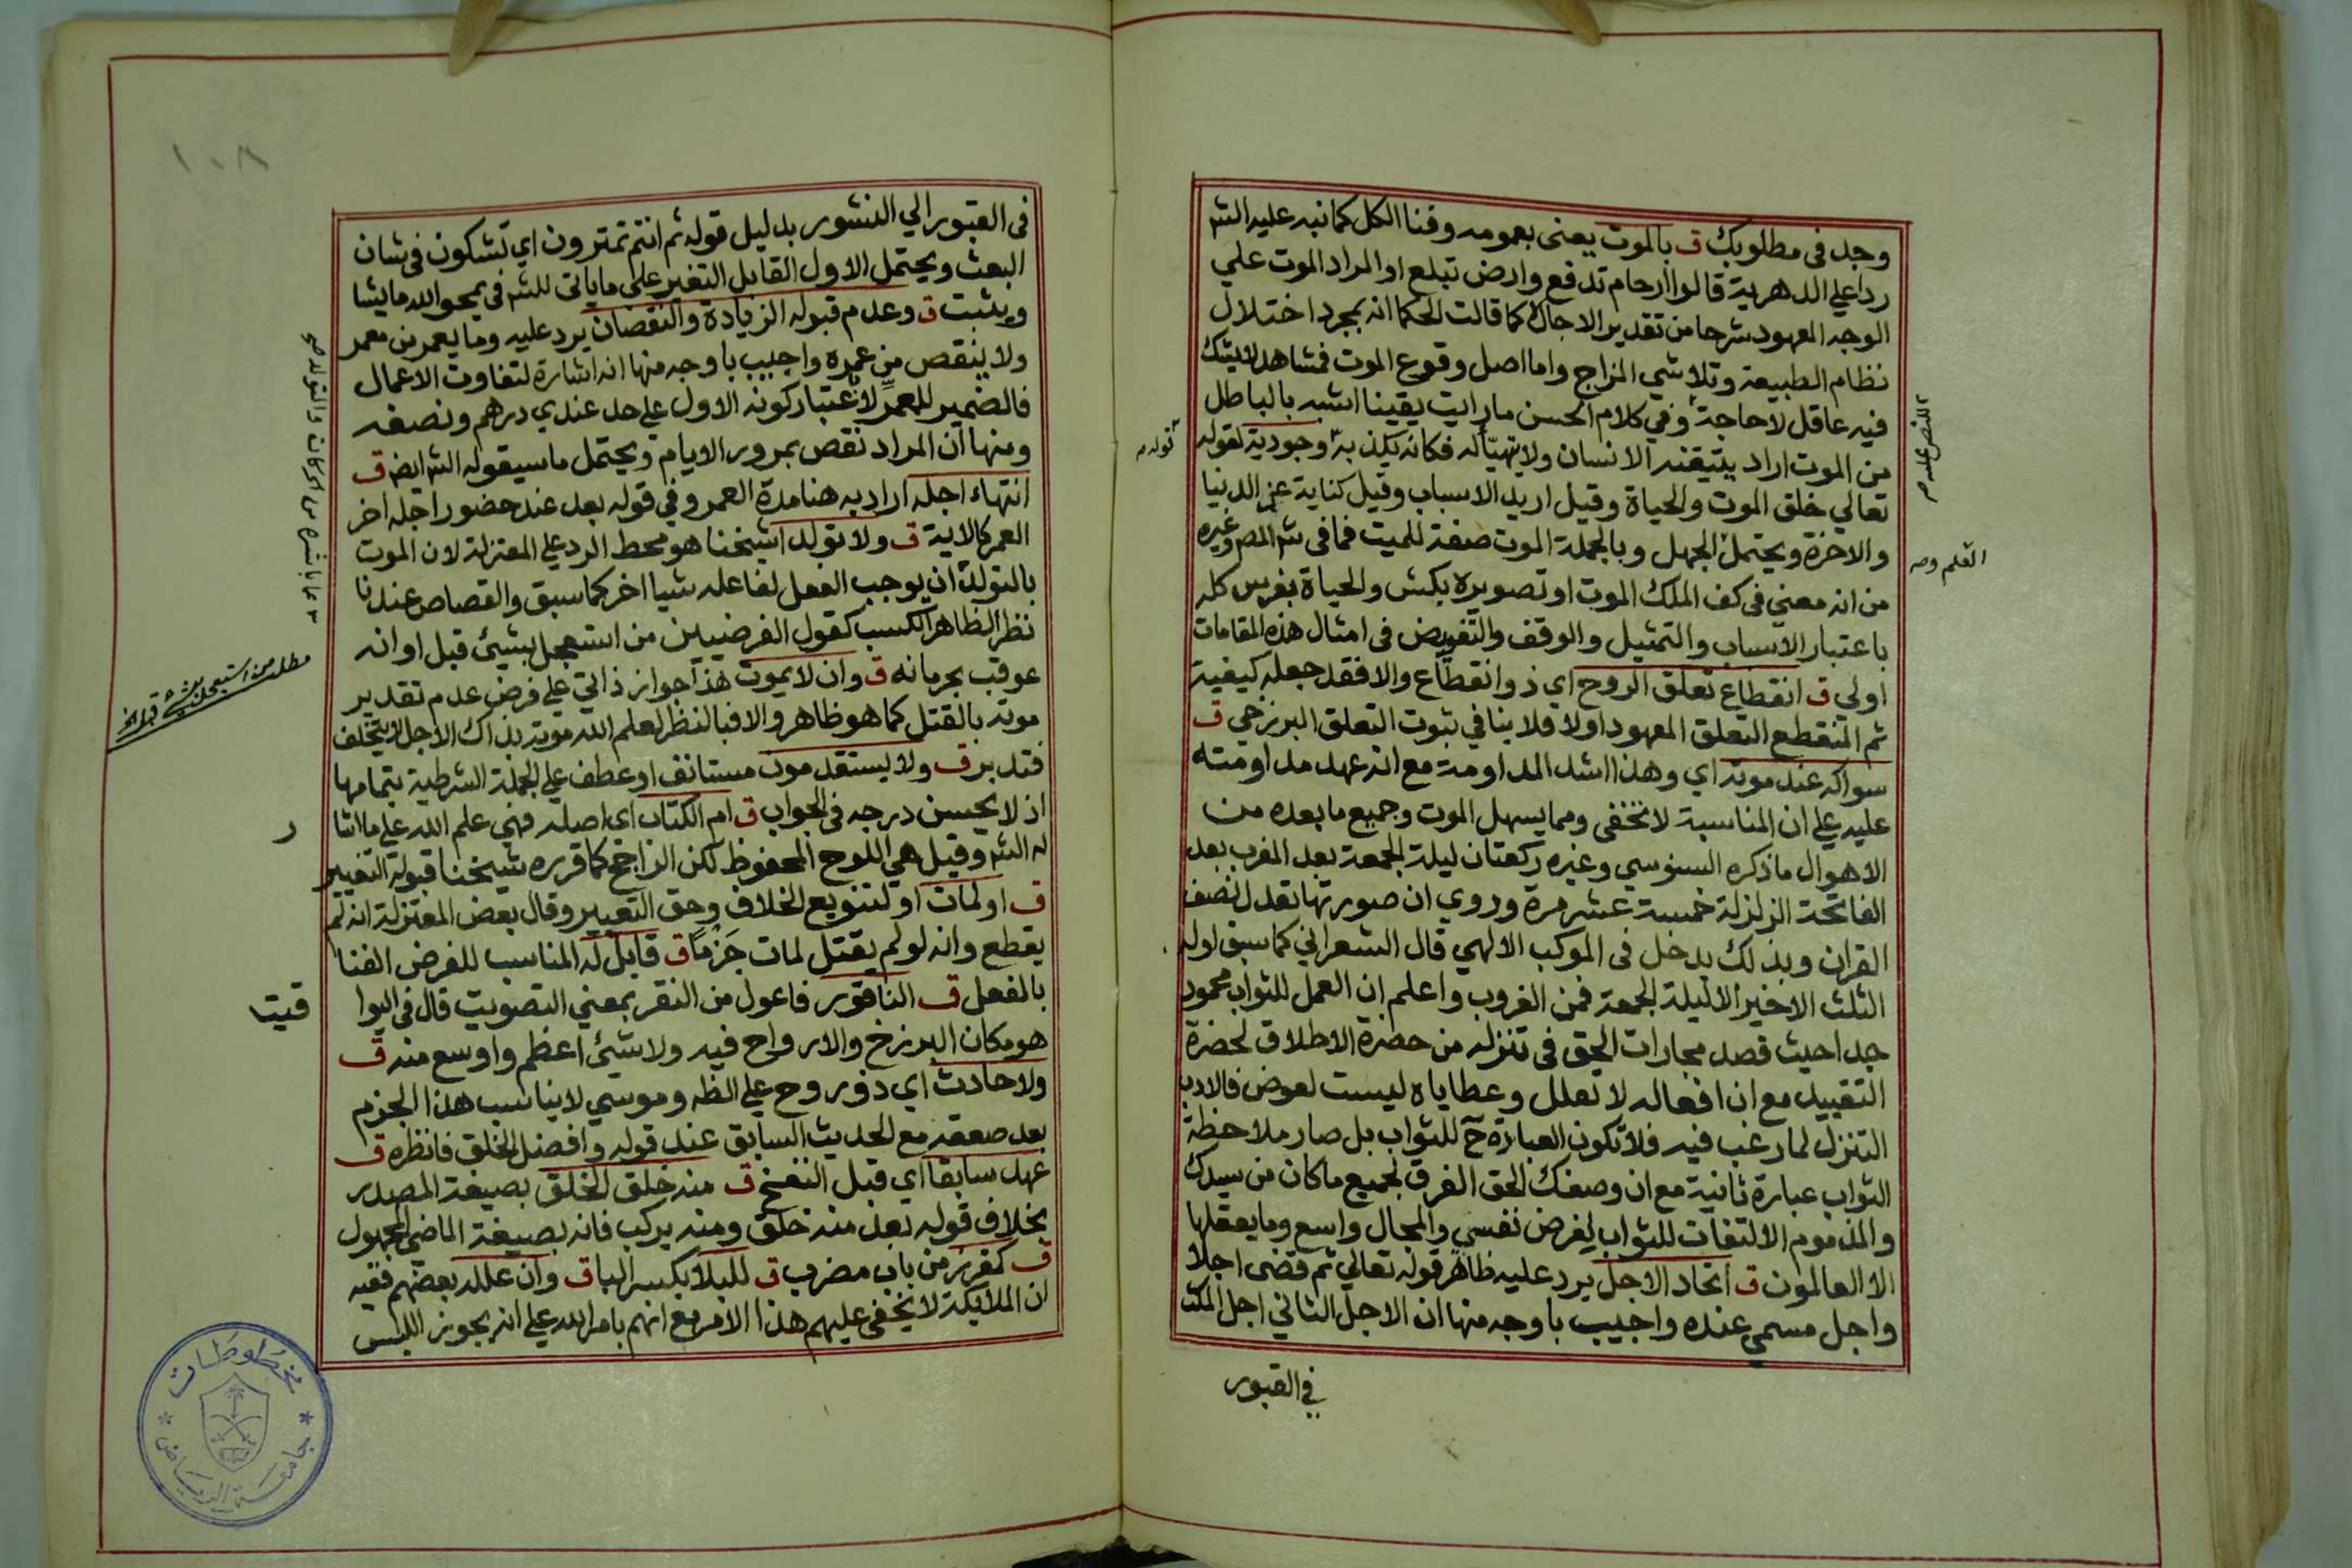 وجد في مطلوبك ق بالموت يعني بعمومه وفنا الكل كما نبه عليه الشه
ردا علي الدهرية قالوا ارحام تدفع وارض تبلع او المراد الموت علي
الوجه المعهود شرحا من تقدير الاجال لا كما قالت الحكما انه بمجرد اختلال
نظام الطبيعة وتلاشي المزاج واما اصل وقوع الموت فمشاهد لا يشك
فيه عاقل لا حاجة وفي كلام الحسن ما رايت يقينا اشبه بالباطل
من الموت اراد يتيقنه الانسان ولا يتهيأ له فكانه يكذ به وجودية لقوله
تعالي خلق الموت والحياة وقيل اريد الاسباب وقيل كناية عن الدنيا
والاخرة ويحتمل الجهل وبالجملة الموت صفة للميت فما في شه المصه وغيره
من انه معني في كف الملك الموت او تصويره بكبش والحياة بفرس كله
باعتبار الاسباب والتمثيل والوقف والتفويض في امثال هذه المقامات
اولي ق انقطاع تعلق الروح اي ذو انقطاع والا فقد جعله كيفية
ثم المنقطع التعلق المعهود اولا فلا ينافي ثبوت التعلق البرزخي ق
سواكه عند موته اي وهذا اشد المداومة مع انه عهد مداومته
عليه علي ان المناسبة لا تخفى ومما يسهل الموت وجميع ما بعده من
الاهوال ما ذكره السنوسي وغيره ركعتان ليلة الجمعة بعد المغرب بعد
الفاتحة الزلزلة خمسة عشر مرة وروي ان صورتها تعدل نصف
القران وبذلك يدخل في الموكب الالهي قال الشعراني كما سبق اوله
الثلث الاخير الا ليلة الجمعة فمن الغروب واعلم ان العمل للثواب محمود
جدا حيث قصد مجارات الحق في تنزله من حضرة الاطلاق لحضرة
التقييد مع ان افعاله لا تعلل وعطاياه ليست لعوض فالادب
التنزل لما رغب فيه فلا تكون العبارة ح للثواب بل صار ملاحظة
الثواب عبارة ثانية مع ان وصفك الحق الفرق لجميع ما كان من سيدك
والمذموم الالتفات للثواب لغرض نفسي والمجال واسع وما يعقلها
الا العالمون ق اتحاد الاجل يرد عليه ظاهر قوله تعالي ثم قضى اجلا
واجل مسمي عنده واجيب باوجه منها ان الاجل الثاني اجل المكث
في القبور
للنص عليه صه
العلم وصه
توله صه
١٠٨
في القبور الي النشور بدليل قوله ثم انتم تمترون اي تشكون في شان
البعث ويحتمل الاول القابل التغير على ما ياتي للشه في يمحو الله ما يشا
ويثبت ق وعدم قبوله الزيادة والنقصان يرد عليه وما يعمر من معمر
ولا ينقص من عمره واجيب باوجه منها انه اشارة لتفاوت الاعمال
فالضمير للمعمر لا باعتبار كونه الاول علي حد عندي درهم ونصفه
ومنها ان المراد نقص بمرور الايام ويحتمل ما سيقوله الشه ايضه ق
انتهاء اجله اراد به هنا مدة العمر وفي قوله بعد عند حضور اجله اخر
العمر كالاية ق ولا تولد شيخنا هو محط الرد علي المعتزلة لان الموت
بالتولد ان يوجب الفعل لفاعله شيا اخر كما سبق والقصاص عندنا
نظر الظاهر الكسب كقول الفرضيين من استعجل بشيئ قبل اوانه
عوقب بحرمانه ق وان لا يموت هذا جواز ذاتي علي فرض عدم تقدير
موته بالقتل كما هو ظاهر والا فبالنظر لعلم الله موته بذاك الاجل لا يتخلف
فتدبر ق ولا يستقدمون مستانف او عطف علي الجملة الشرطية بتمامها
اذ لا يحسن درجه في الجواب ق ام الكتاب اي اصله فهي علم الله علي ما اشا
له الشه وقيل هي اللوح المحفوظ لكن الراجح كما قرره شيخنا قبوله التغيير
ق او لمات او لتنويع الخلاف وحق التعبير وقال بعض المعتزلة انه لم
يقطع وانه لو لم يقتل لمات جزما ق قابل له المناسب للغرض الفنا
بالفعل ق الناقور فاعول من النقر بمعني التصويت قال في اليوا
هو مكان البرزخ والارواح فيه ولا شيئ اعظم واوسع منه ق
ولا حادث اي ذو روح علي الظه وموسي لا يناسب هذا الجزم
بعد صعقه مع الحديث السابق عند قوله وافضل الخلق فانظره ق
عهد سابقا اي قبل النفخ ق منه خلق الخلق بصيغة المصدر
بخلاف قوله بعد منه خلق ومنه يركب فانه بصيغة الماضي المجهول
ق كمغرز من باب مضرب ق للبلا بكسر البا ق وان علله بعضهم ففيه
ان الملايكة لا يخفى عليهم هذا الامر مع انهم بامر الله علي انه يجوز اللبس
مطلب من استعجل بشئ قبل الخ
ر
قيتا
مخطوطات
جامعة الرياض